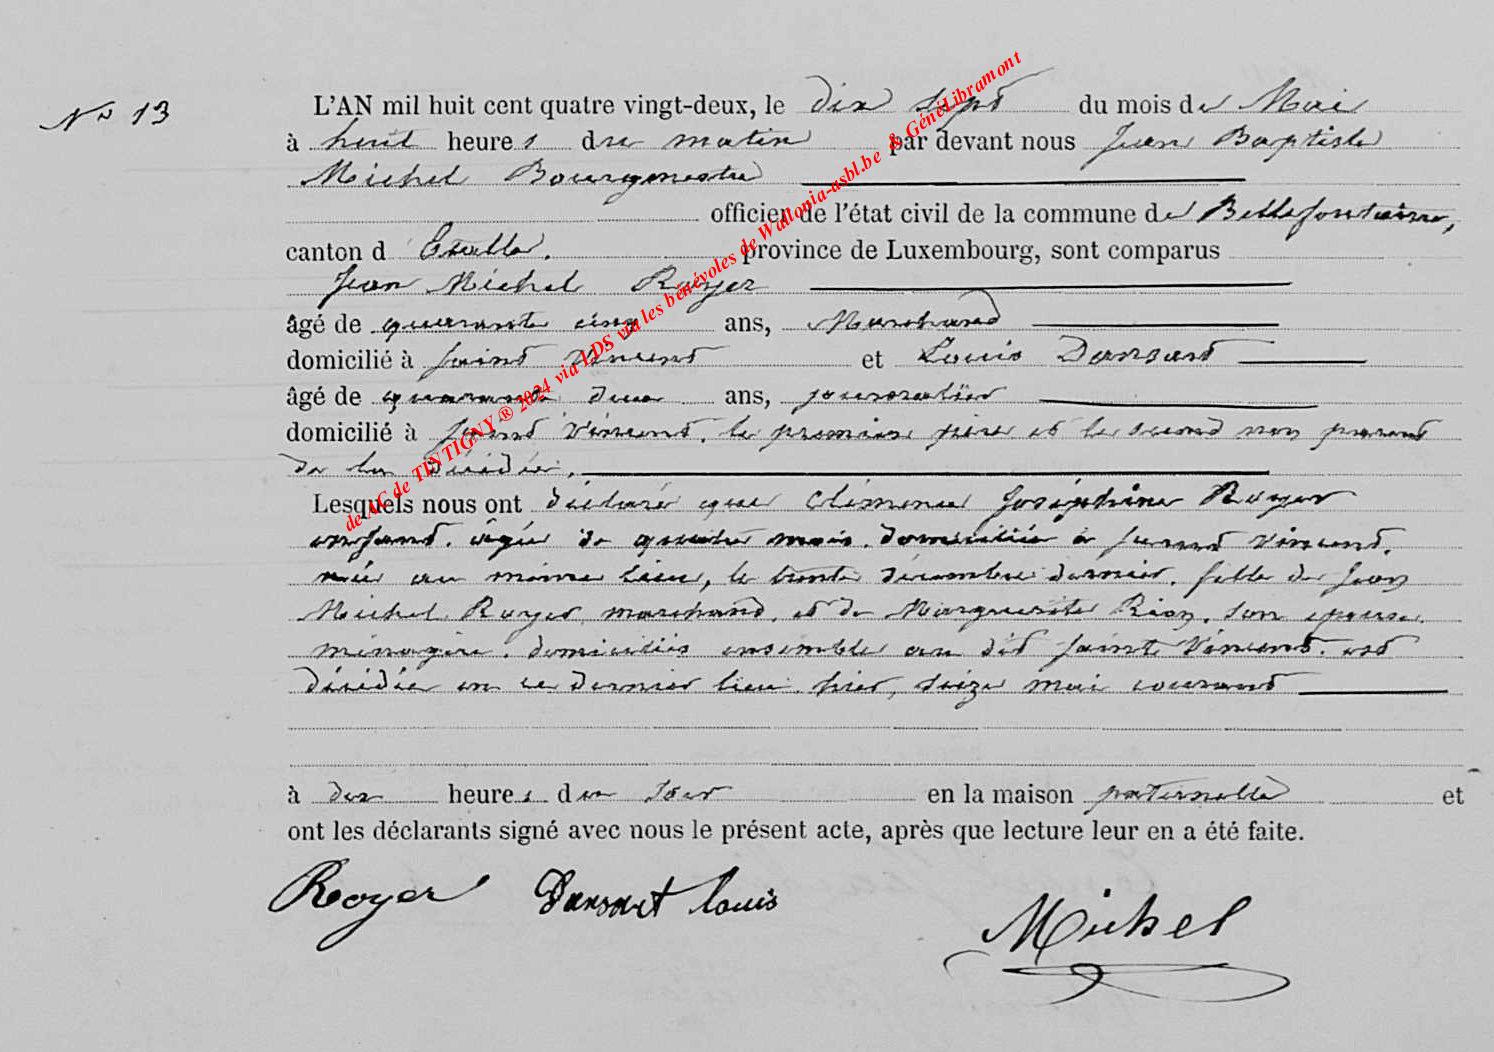 No 13
L'AN mil huit cent quatre vingt-deux, le dix sept du mois de Mai
à huit heures du matin par devant nous Jean Baptiste
Michel Bourgmestre
officier de l'état civil de la commune de Bellefontaine,
canton d'Etalle. province de Luxembourg, sont comparus
Jean Michel Royer
âgé de quarante cinq ans, Marchand
domicilié à Saint Vincent et Louis Dansart
âgé de quarante deux ans, journalier
domicilié à Saint Vincent. le premier père et le second non parent
de la décédée.
Lesquels nous ont déclaré que Clémence Joséphine Royer
enfant. âgée de quatre mois. domiciliée à Saint Vincent.
née au même lieu, le trente décembre dernier. fille de Jean
Michel Royer, marchand, et de Marguerite Rion. son épouse.
ménagère. domiciliés ensemble au dit Saint Vincent. est
décédée en ce dernier lieu. hier, seize mai courant
à dix heures du soir en la maison paternelle et
ont les déclarants signé avec nous le présent acte, après que lecture leur en a été faite.
Royer Dansart Louis
Michel
de AC de TINTIGNY ® 2024 via LDS via les bénévoles de Wallonia-asbl.be & GénéLibramont